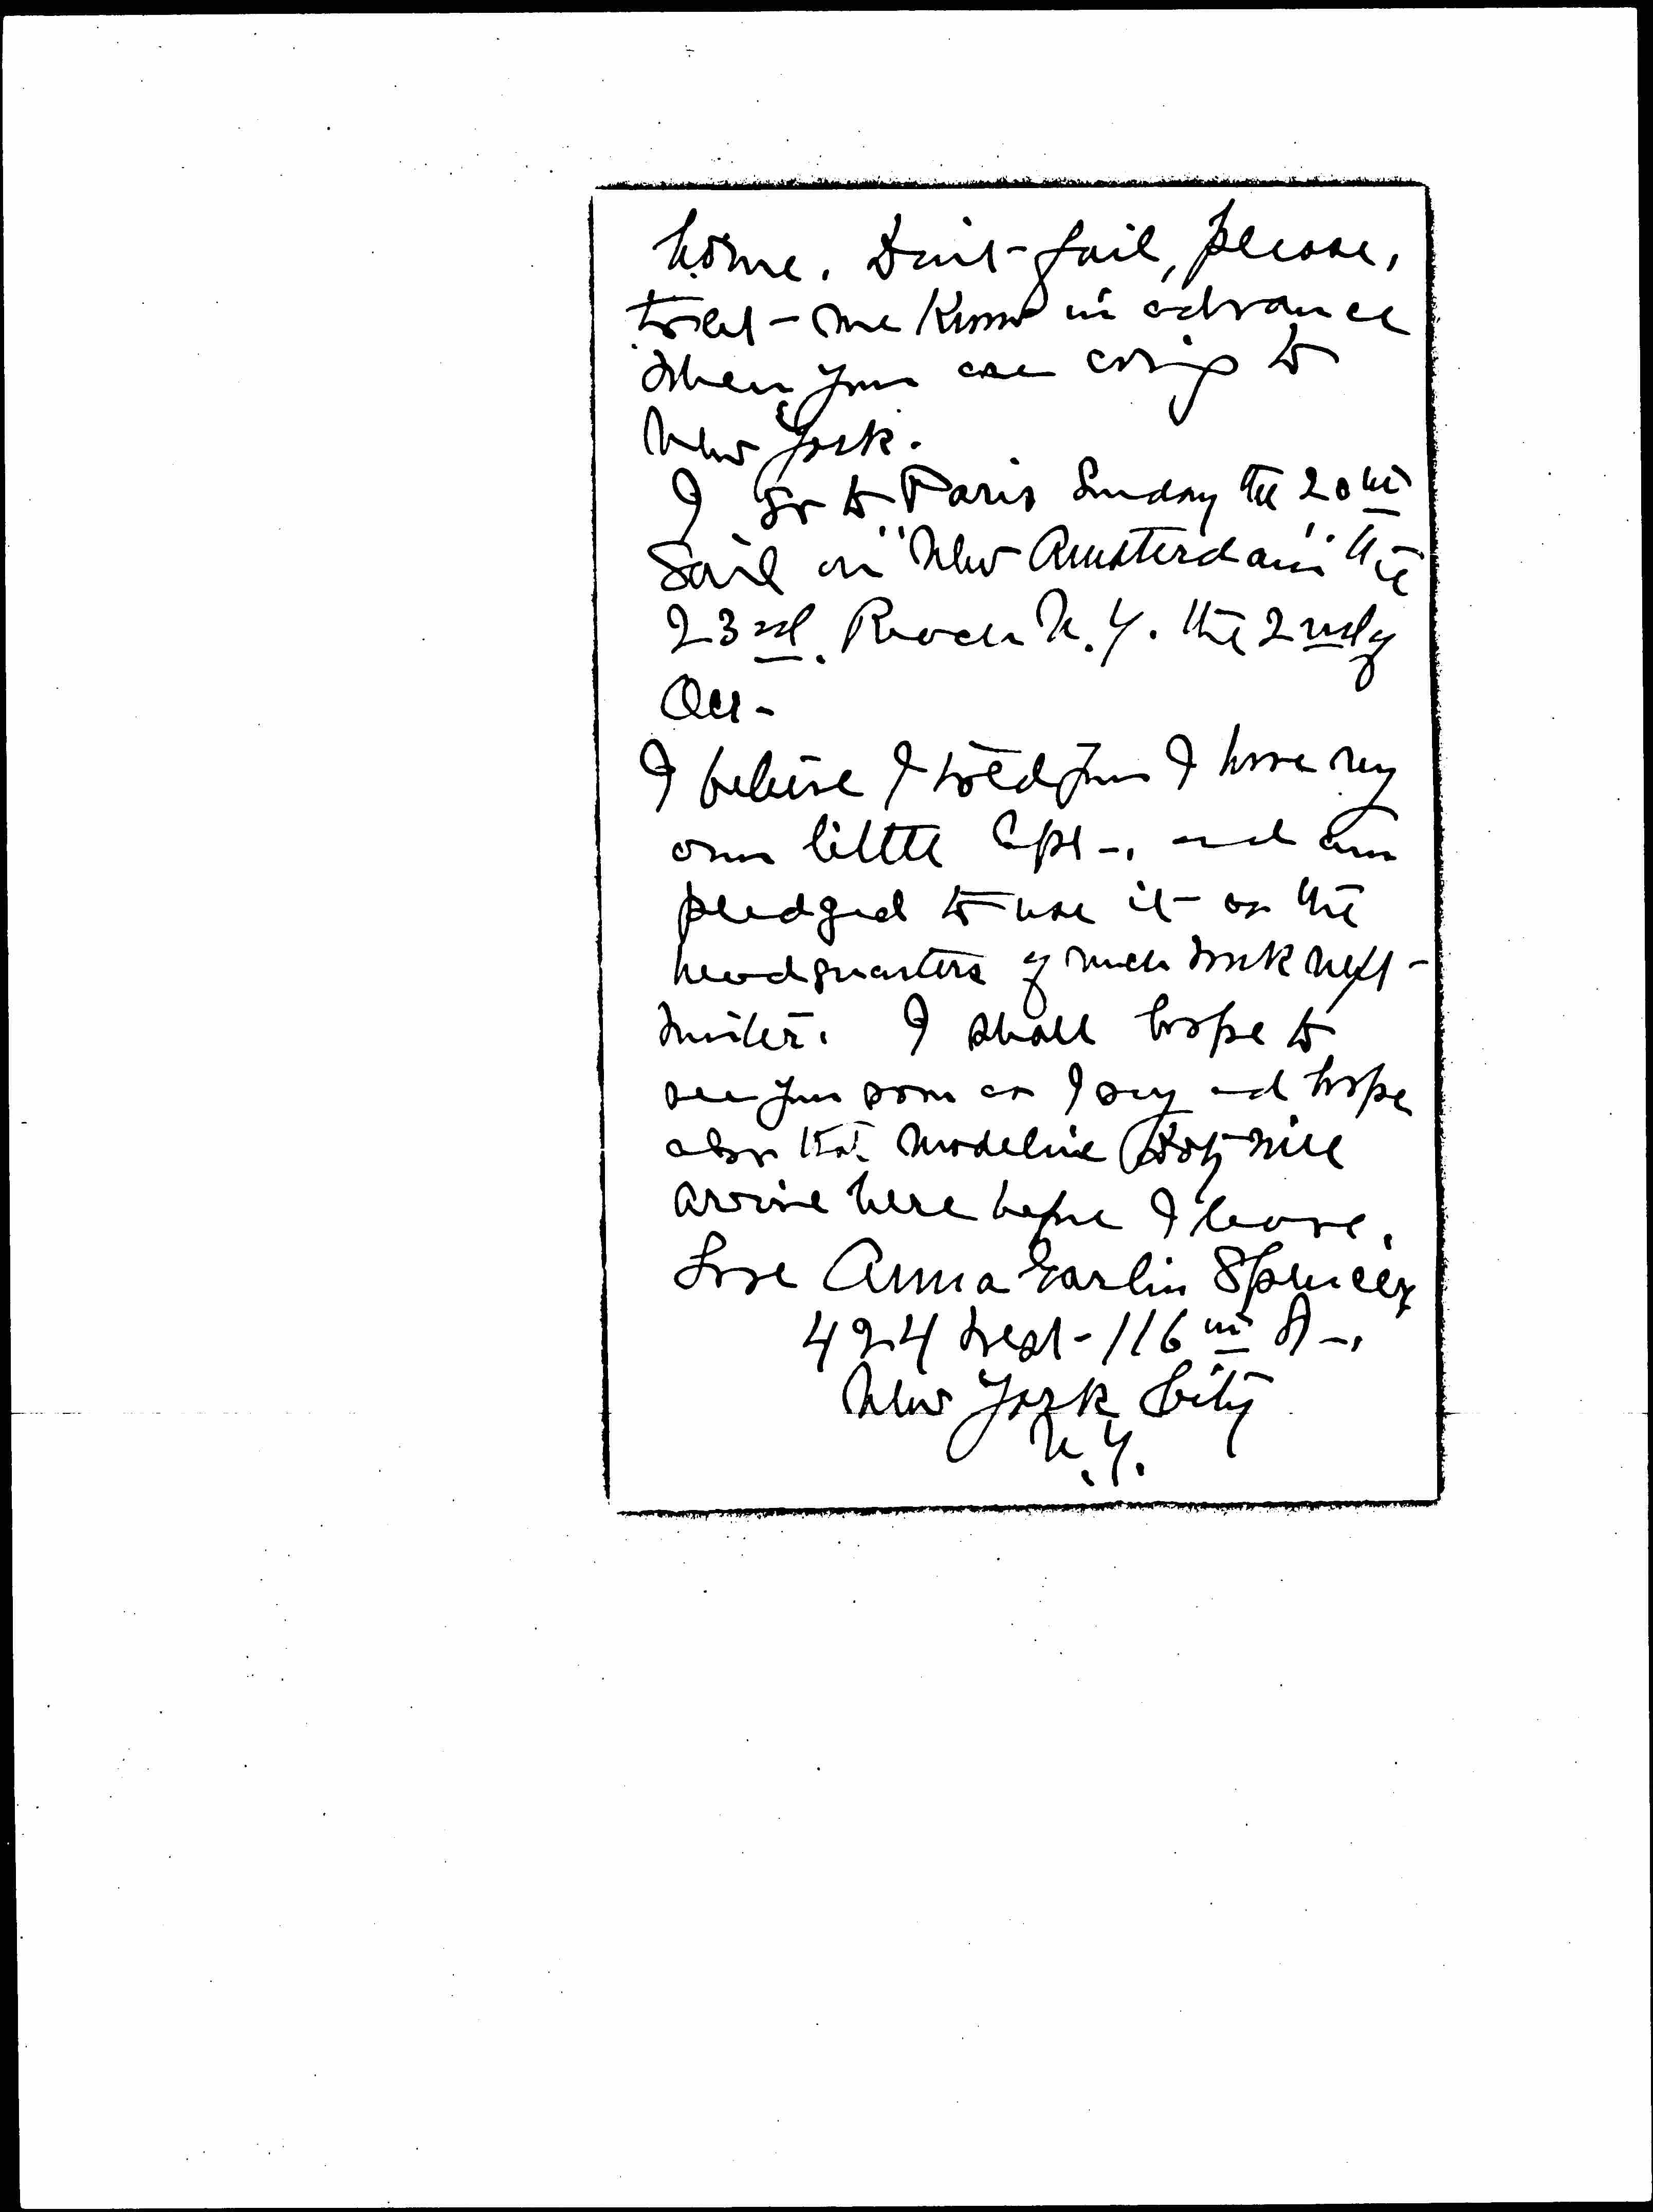 home. Don't fail, please,
to let me know in advance
when you are coming to
New York.
I go to Paris Sunday the 20th
Sail on "New Amsterdam" the
23rd. Reach N.Y. the 2nd of
Oct.
I believe I told you I have my
own little Apt., and am
pledged to use it as the
headquarters of much work next
winter. I shall hope to
see you soon as I say and hope
also that Madeline Doty will
arrive here before I leave.
Love Anna Garlin Spencer
424 West 116th St.,
New York City
N.Y.